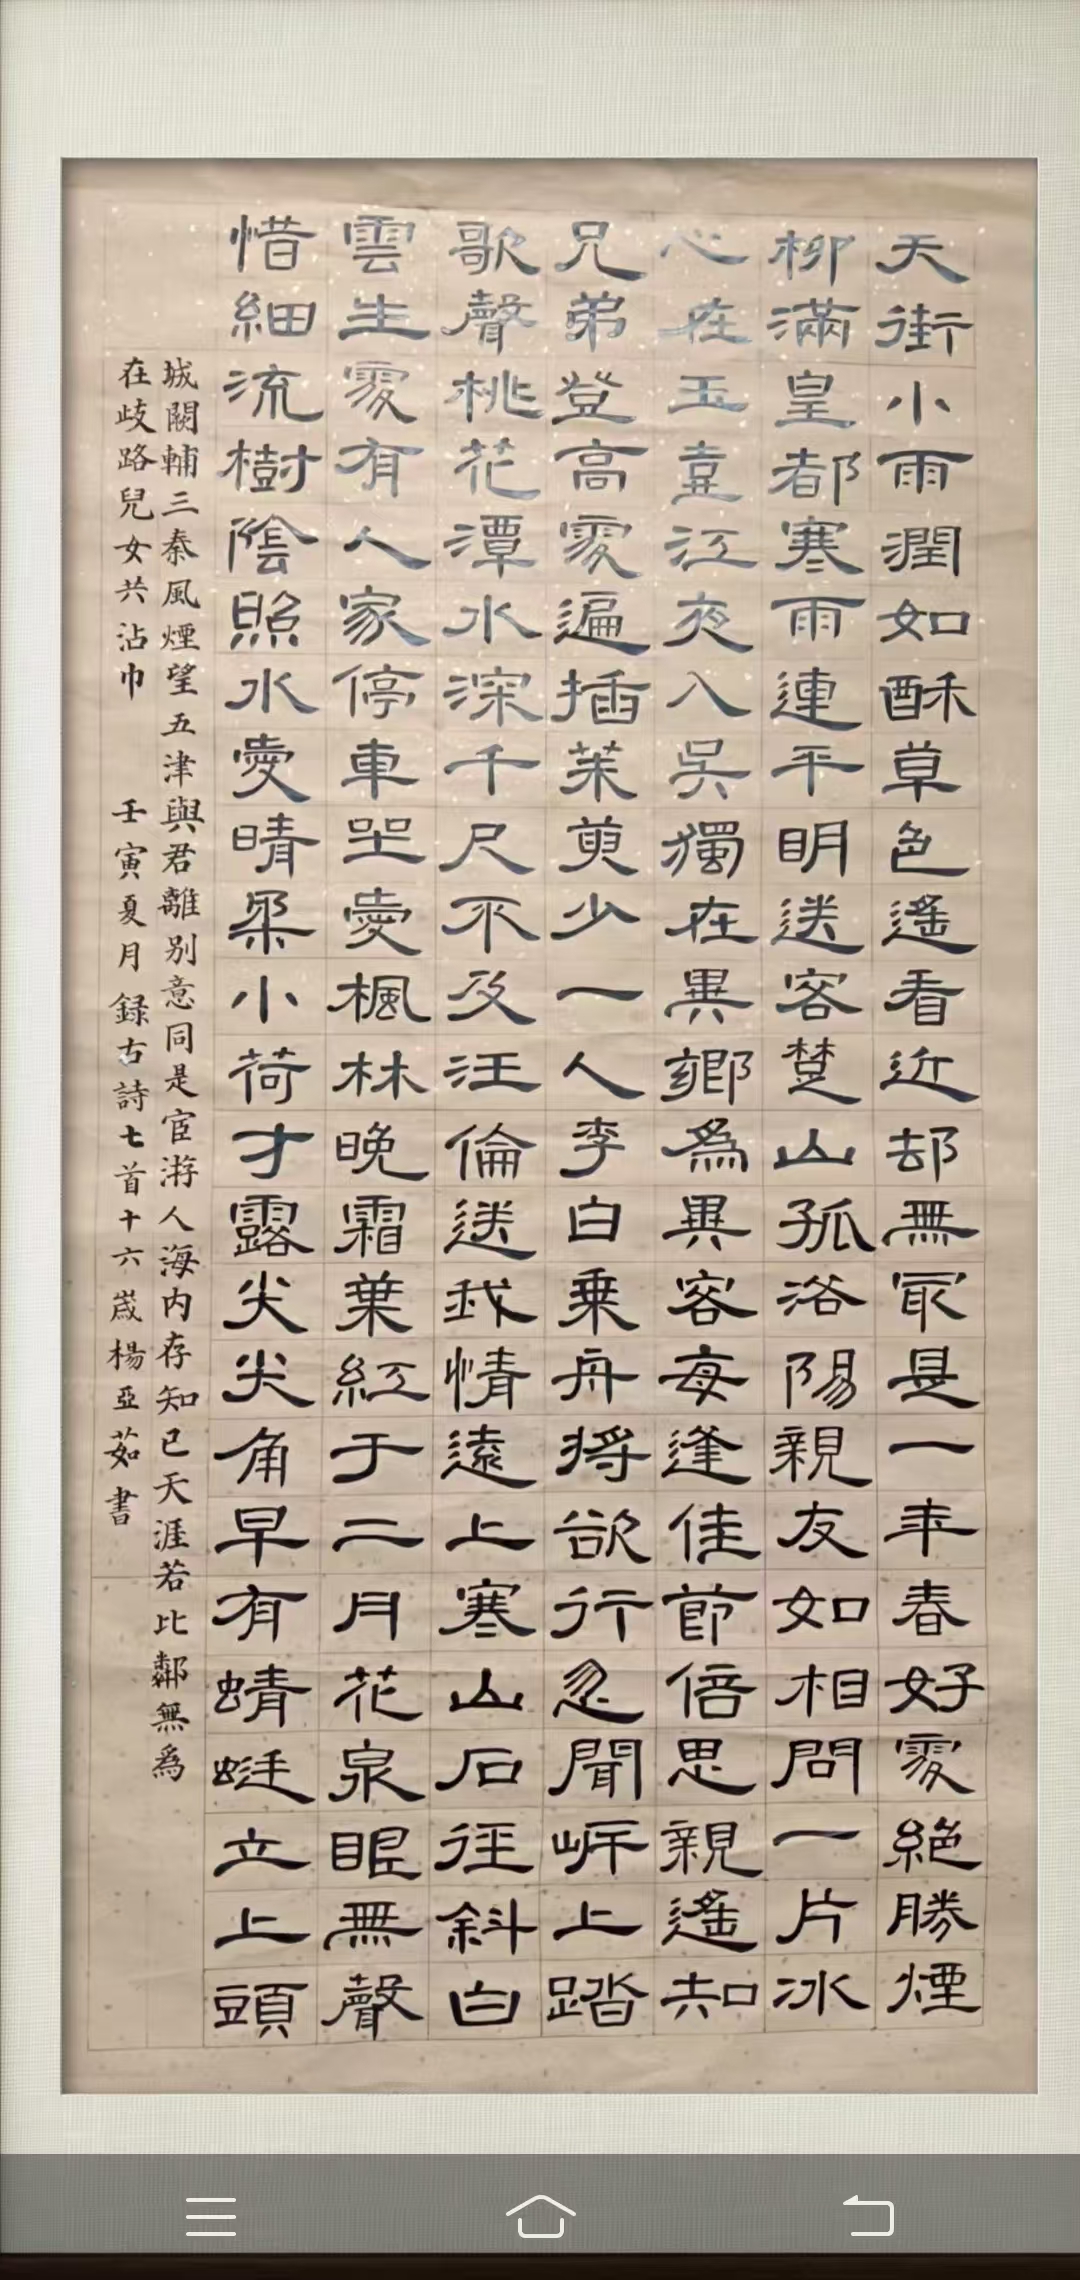 天街小雨潤如酥草色遙看近却無最是一年春好處絕勝煙
柳滿皇都寒雨連平明送客楚山孤洛陽親友如相問一片冰
心在玉壺江夜入吳獨在異鄉為異客每逢佳節倍思親遙知
兄弟登高處遍插茱萸少一人李白乘舟將欲行忽聞岸上踏
歌聲桃花潭水深千尺不及汪倫送我情遠上寒山石徑斜白
雲生處有人家停車坐愛楓林晚霜葉紅于二月花泉眼無聲
惜細流樹陰照水愛晴柔小荷才露尖尖角早有蜻蜓立上頭
城闕輔三秦風煙望五津與君離别意同是宦游人海内存知己天涯若比鄰無為
在歧路兒女共沾巾 壬寅夏月録古詩七首十六歲楊亞茹書